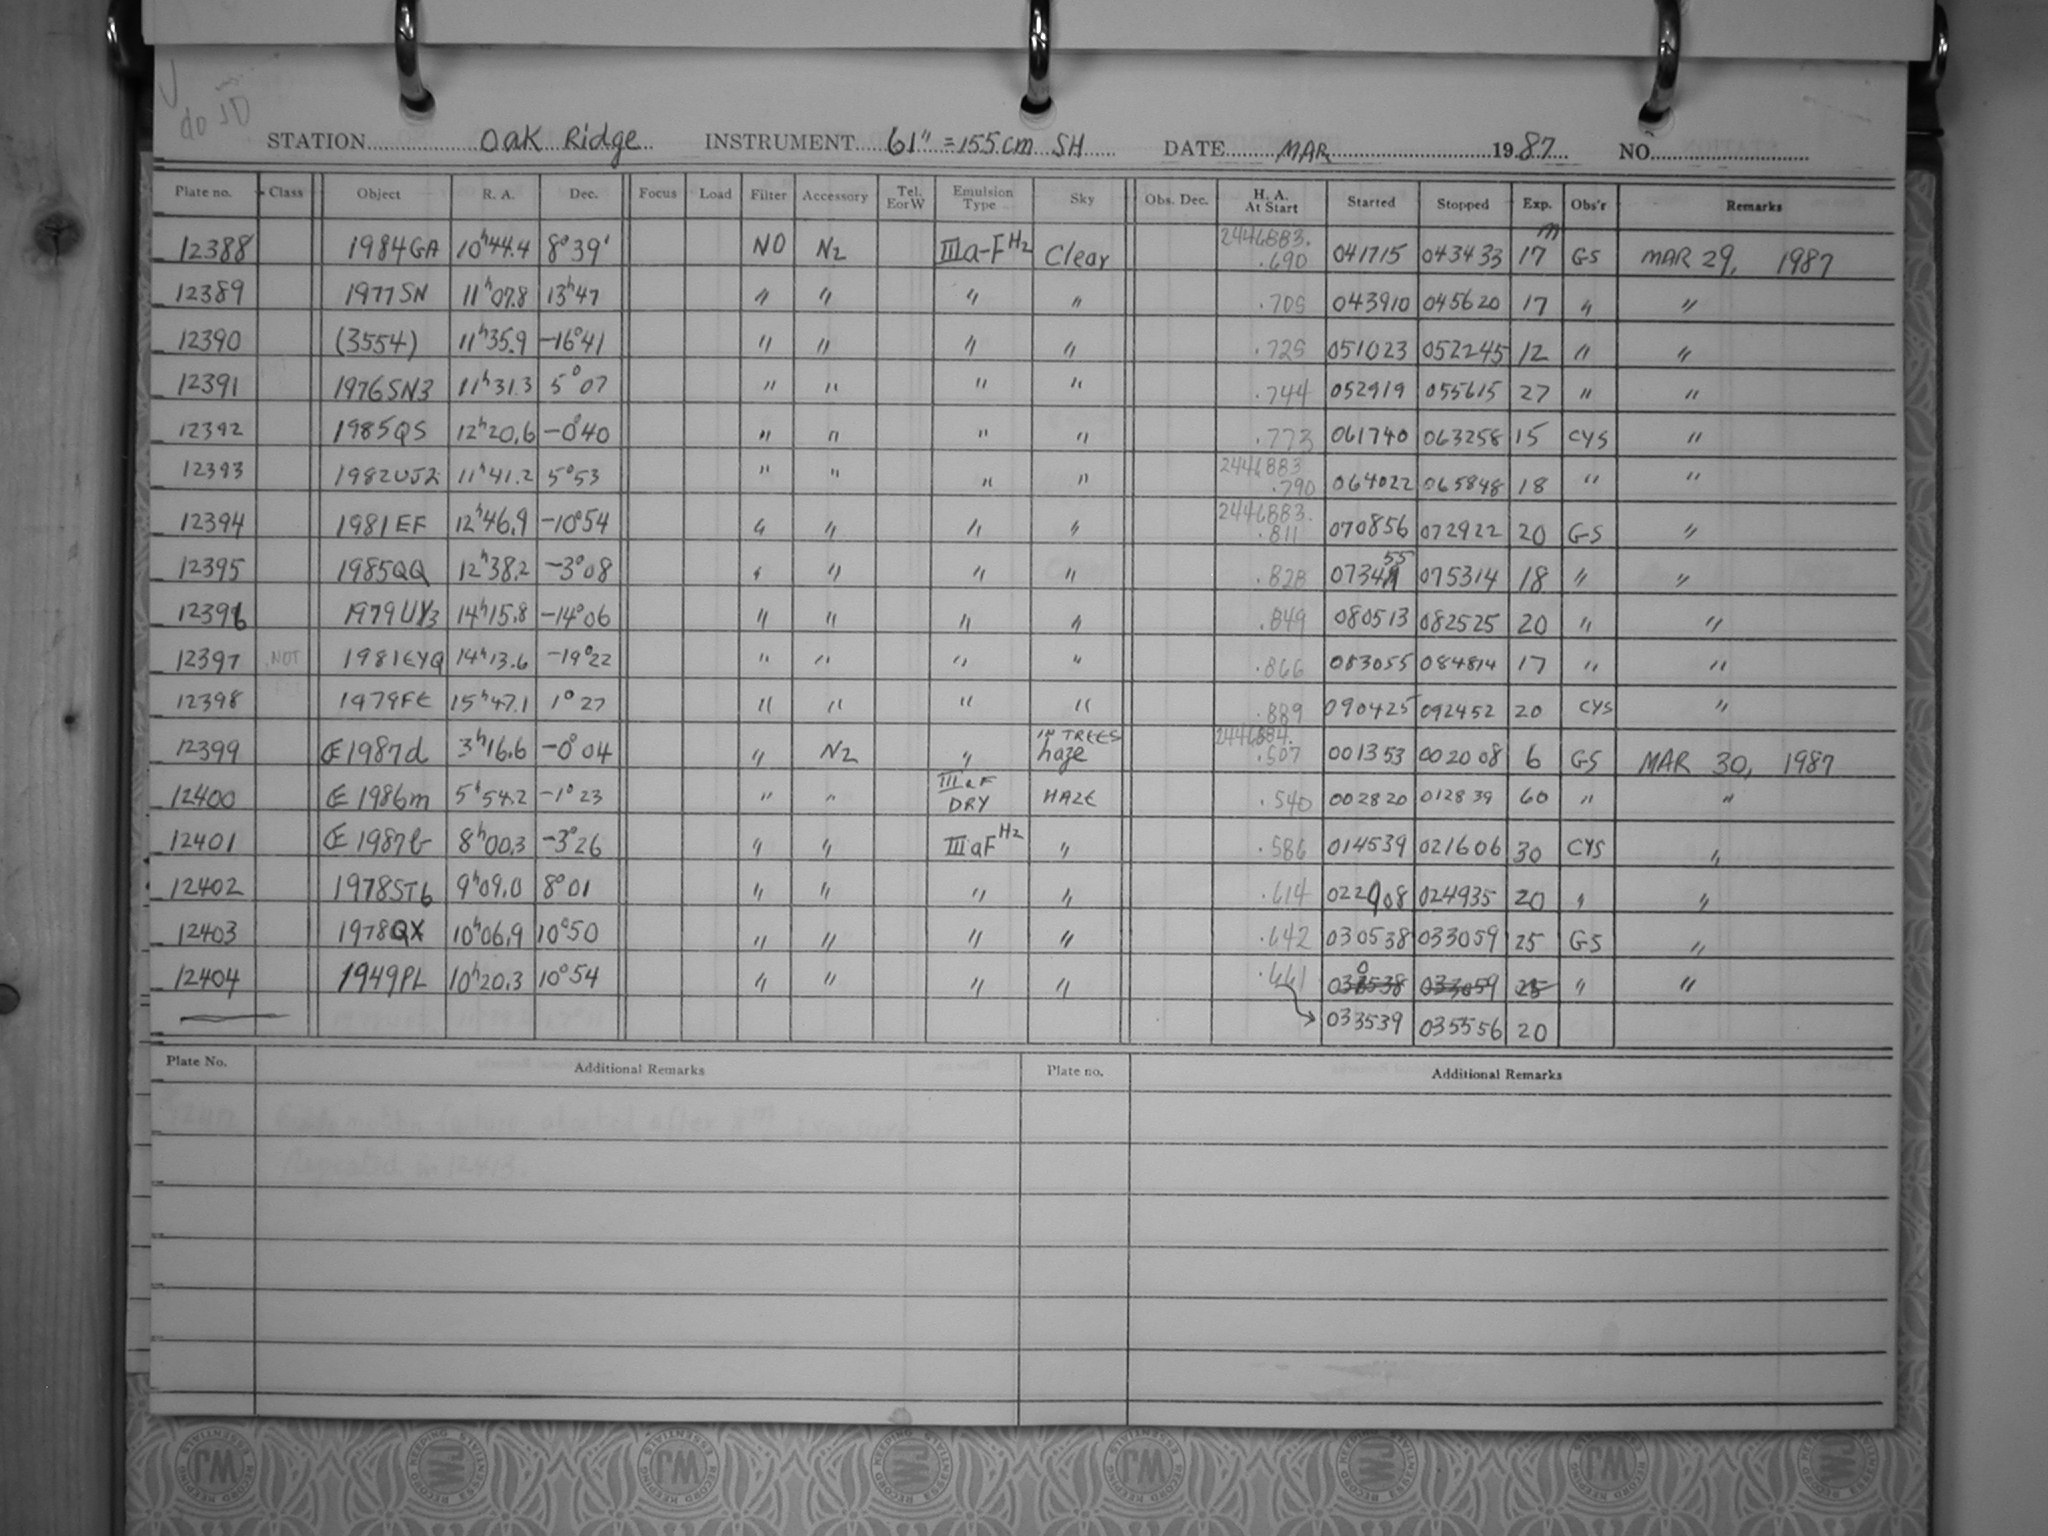 do JD
STATION Oak Ridge INSTRUMENT 61" = 155 cm SH DATE MAR 1987 NO.
Plate no. Class Object R. A. Dec. Focus Load Filter Accessory Tel. E or W Emulsion Type Sky Obs. Dec. H. A. At Start Started Stopped Exp. Obs'r Remarks
12388 1984GA 10h44.4 8°39' NO N2 IIIa-F H2 Clear 2446883. .690 041715 043433 17m GS MAR 29, 1987
12389 1977SN 11h07.8 13h47 " " " " .705 043910 045620 17 " "
12390 (3554) 11h35.9 -16°41 " " " " .725 051023 052245 12 " "
12391 1976SN3 11h31.3 5°07 " " " " .744 052919 055615 27 " "
12392 1985QS 12h20.6 -0°40 " " " " .773 061740 063258 15 CYS "
12393 1982UJ2 11h41.2 5°53 " " " " 2446883 .790 064022 065848 18 " "
12394 1981EF 12h46.9 -10°54 " " " " 2446883. .811 070856 072922 20 GS "
12395 1985QQ 12h38.2 -3°08 " " " " .828 073455 075314 18 " "
12396 1979UY3 14h15.8 -14°06 " " " " .849 080513 082525 20 " "
12397 NOT 1981EYQ 14h13.6 -19°22 " " " " .866 083055 084814 17 " "
12398 1979FE 15h47.1 1°27 " " " " .889 090425 092452 20 CYS "
12399 Œ 1987d 3h16.6 -0°04 " N2 " IN TREES haze 2446884. .507 001353 002008 6 GS MAR 30, 1987
12400 Œ 1986m 5h54.2 -1°23 " " IIIaF DRY HAZE .540 002820 012839 60 " "
12401 Œ 1987b 8h00.3 -3°26 " " IIIaF H2 " .586 014539 021606 30 CYS "
12402 1978ST6 9h09.0 8°01 " " " " .614 022908 024935 20 " "
12403 1978QX 10h06.9 10°50 " " " " .642 030538 033059 25 GS "
12404 1949PL 10h20.3 10°54 " " " " .661 030538 033059 25 " "
033539 035556 20
Plate No. Additional Remarks Plate no. Additional Remarks